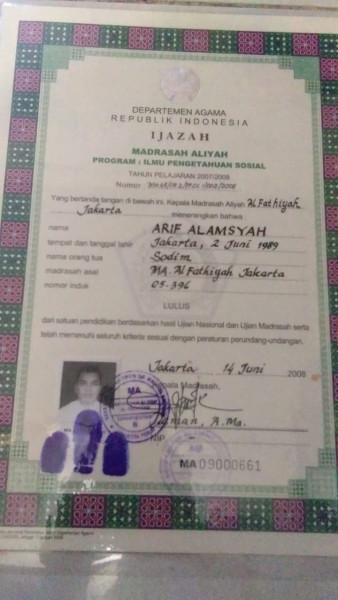 DEPARTEMEN AGAMA
REPUBLIK INDONESIA
IJAZAH
MADRASAH ALIYAH
PROGRAM : ILMU PENGETAHUAN SOSIAL
TAHUN PELAJARAN 2007/2008
Nomor
Yang bertanda tangan di bawah ini, Kepala Madrasah Aliyah Al Fathiyah
Jakarta menerangkan bahwa :
nama ARIF ALAMSYAH
tempat dan tanggal lahir Jakarta, 2 Juni 1989
nama orang tua Sodim
madrasah asal MA. Al Fathiyah Jakarta
nomor induk 05-396
LULUS
dari satuan pendidikan berdasarkan hasil Ujian Nasional dan Ujian Madrasah serta
telah memenuhi seluruh kriteria sesuai dengan peraturan perundang-undangan.
Jakarta, 14 Juni 2008
Kepala Madrasah,
MA
A. Ma.
NIP
MA 09000661